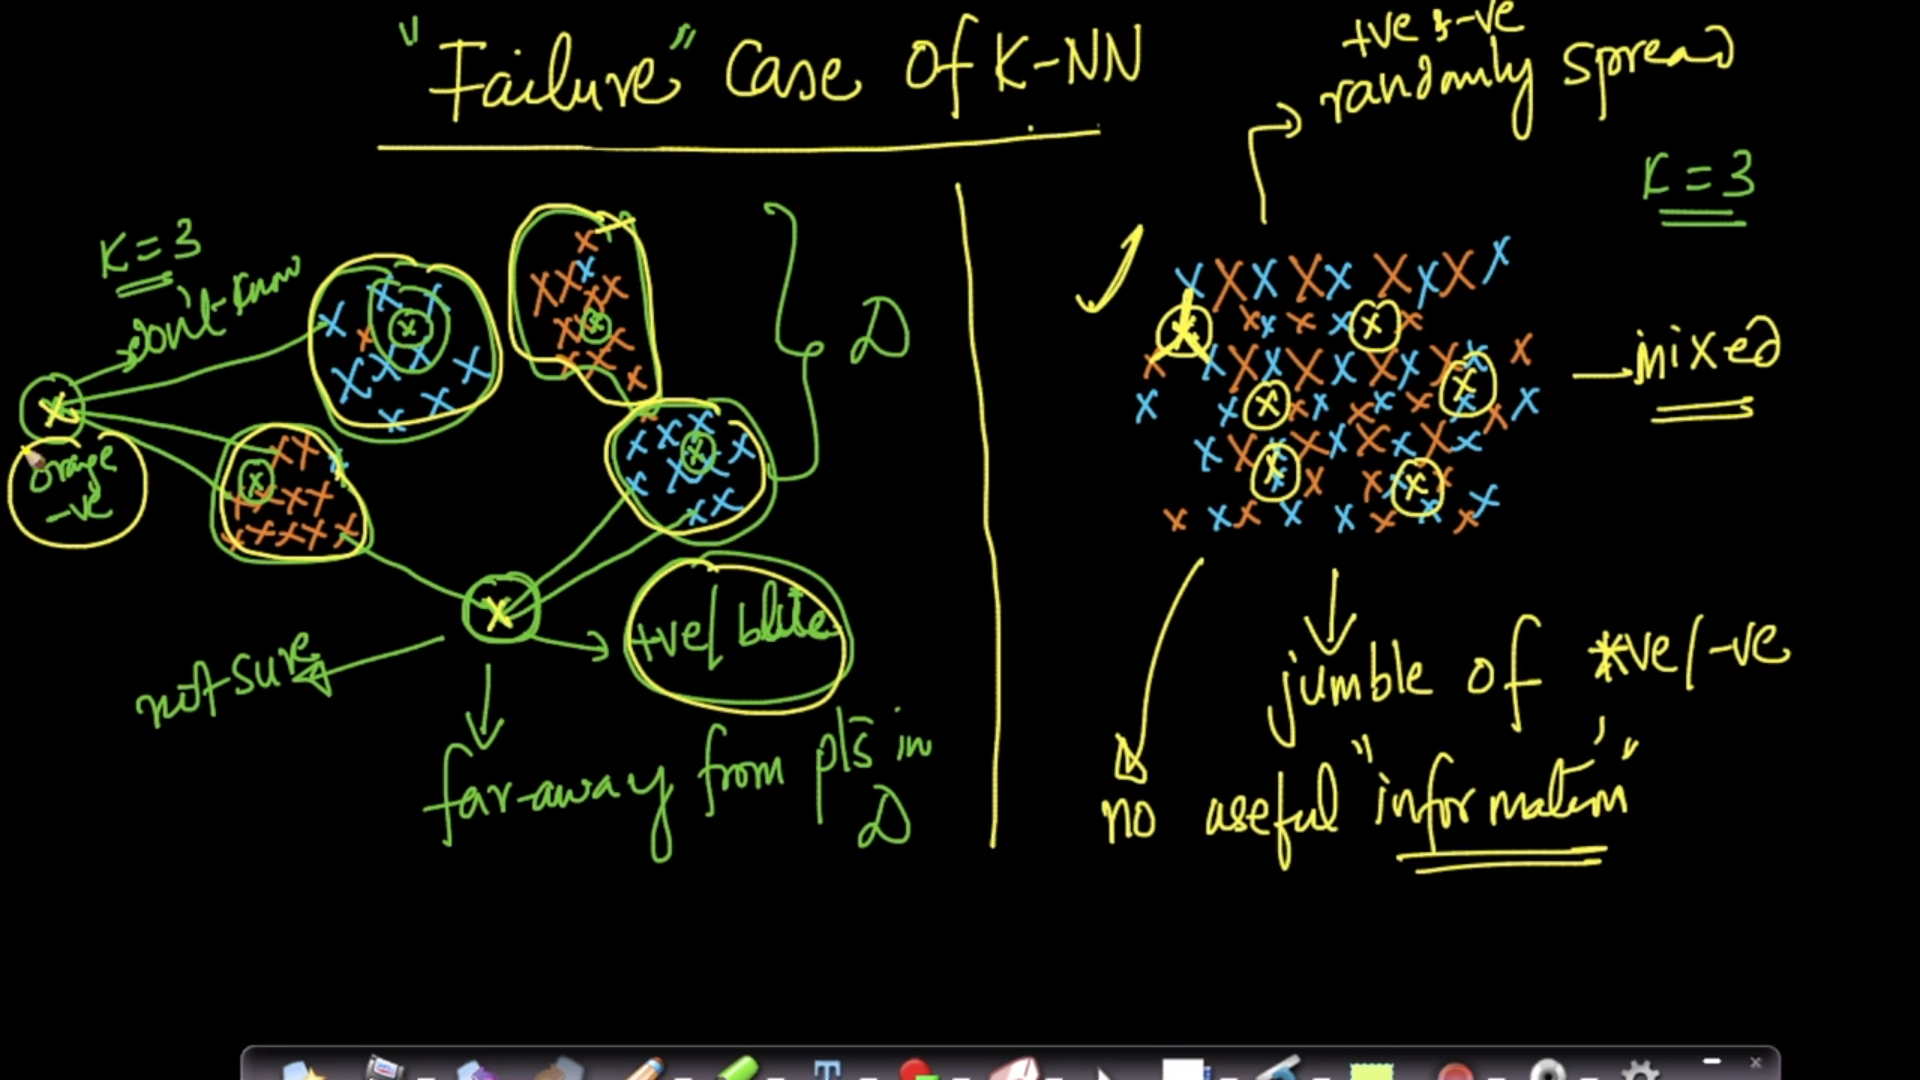 "Failure" Case of K-NN
K=3
don't-know
orange
-ve
D
not-sure
+ve/ blue
far-away from pts in
D
+ve & -ve
randomly spread
K=3
mixed
jumble of +ve/-ve
no useful "information"